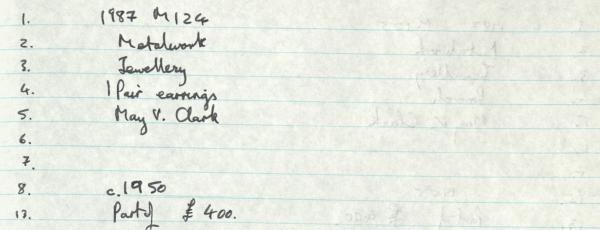 1. 1987 M124
2. Metalwork
3. Jewellery
4. 1 Pair earrings
5. May V. Clark
6.
7.
8. c.1950
13. Part of £400.